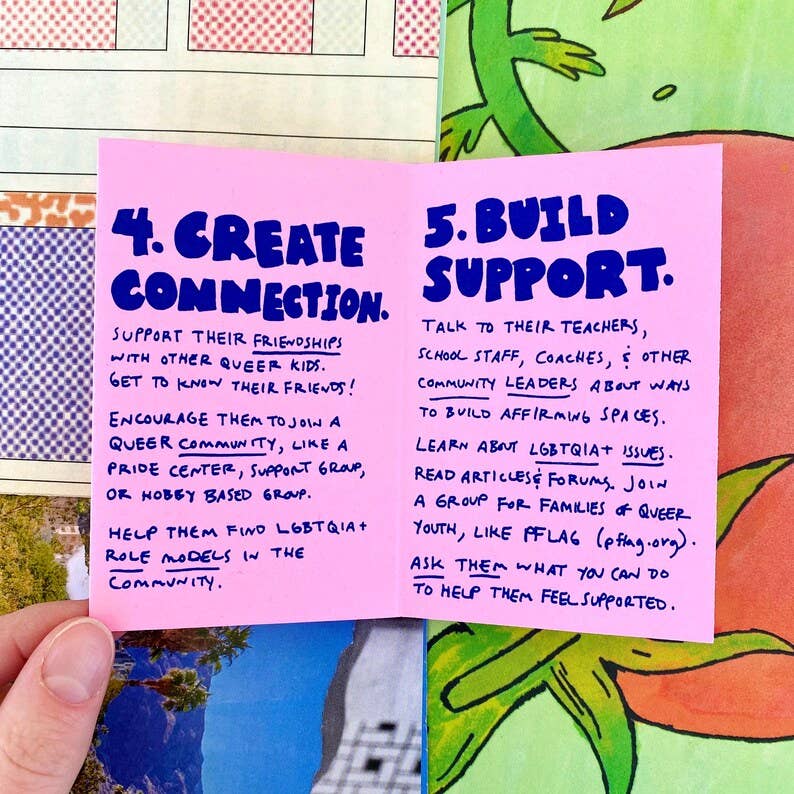 4. CREATE
CONNECTION.
SUPPORT THEIR FRIENDSHIPS
WITH OTHER QUEER KIDS.
GET TO KNOW THEIR FRIENDS!
ENCOURAGE THEM TO JOIN A
QUEER COMMUNITY, LIKE A
PRIDE CENTER, SUPPORT GROUP,
OR HOBBY BASED GROUP.
HELP THEM FIND LGBTQIA+
ROLE MODELS IN THE
COMMUNITY.
5. BUILD
SUPPORT.
TALK TO THEIR TEACHERS,
SCHOOL STAFF, COACHES, & OTHER
COMMUNITY LEADERS ABOUT WAYS
TO BUILD AFFIRMING SPACES.
LEARN ABOUT LGBTQIA+ ISSUES.
READ ARTICLES & FORUMS. JOIN
A GROUP FOR FAMILIES OF QUEER
YOUTH, LIKE PFLAG (pflag.org).
ASK THEM WHAT YOU CAN DO
TO HELP THEM FEEL SUPPORTED.